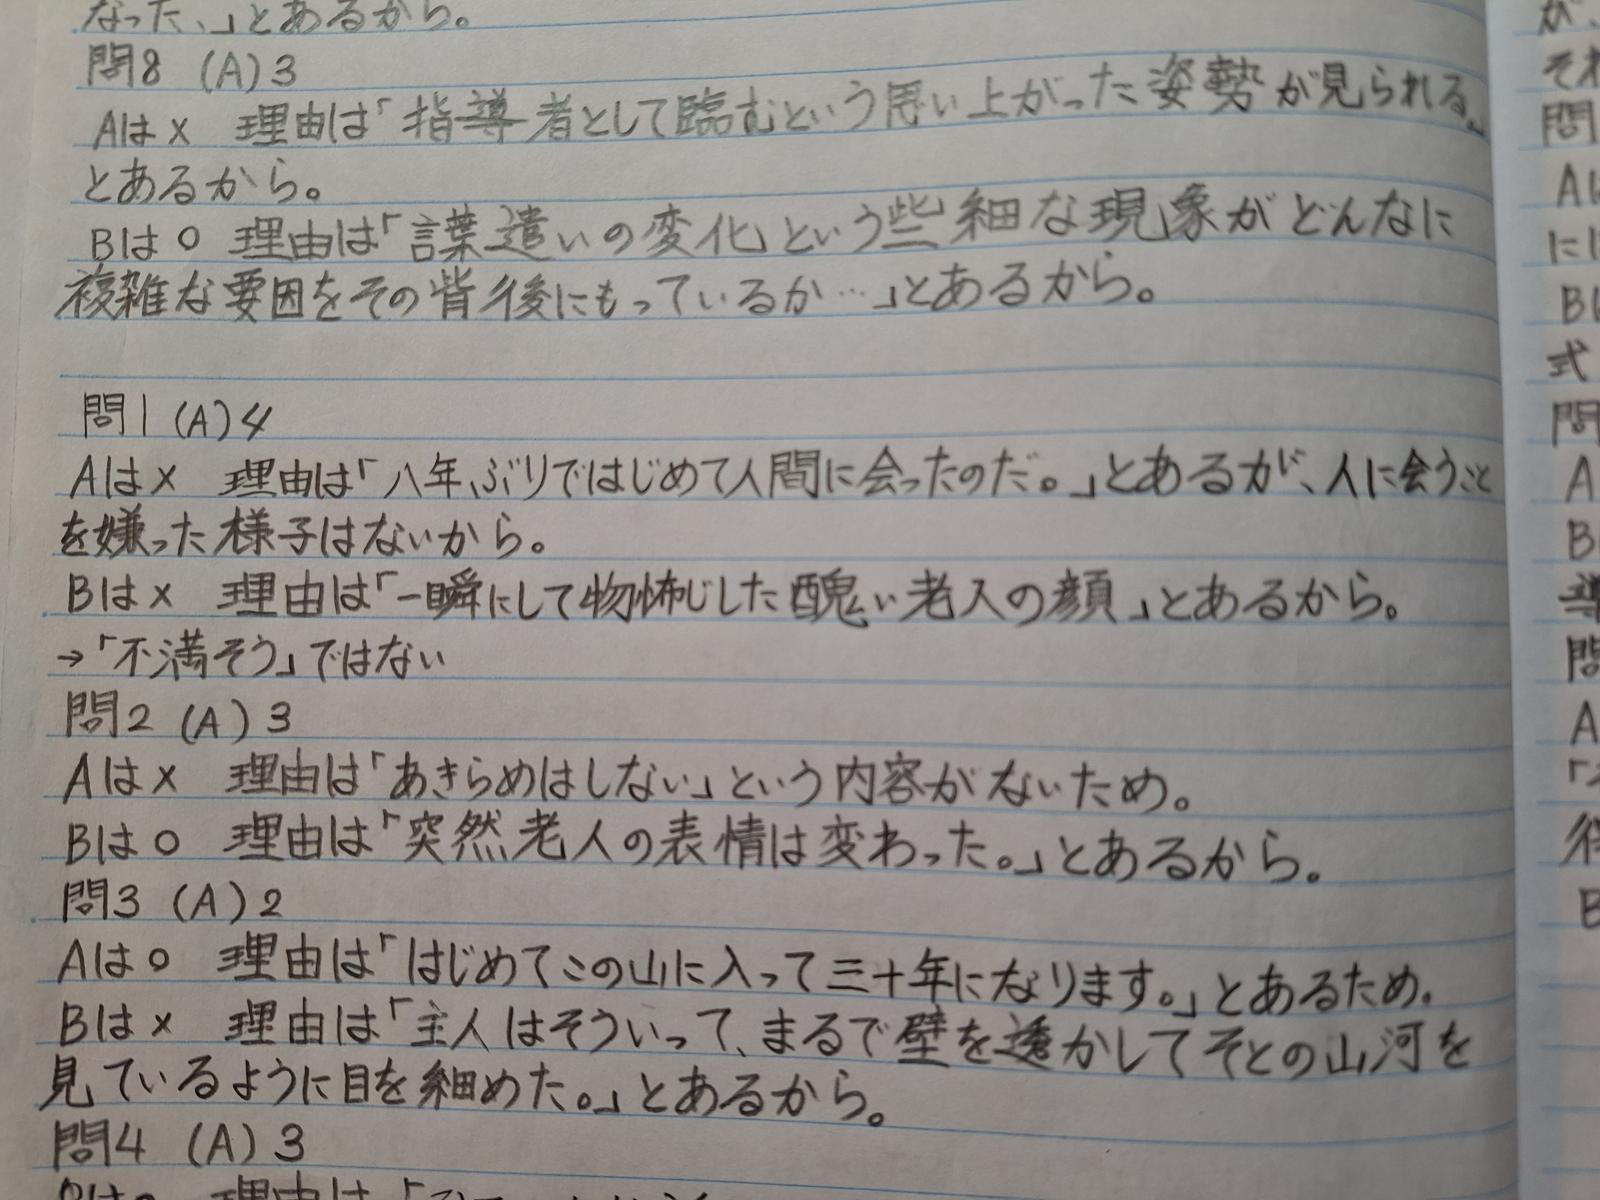 なった、」とあるから。
問8 (A)3
Aは× 理由は「指導者として臨むという思い上がった姿勢が見られる。
とあるから。
Bは○ 理由は「言葉遣いの変化」という些細な現象がどんなに
複雑な要因をその背後にもっているか…」とあるから。
問1 (A)4
Aは× 理由は「八年、ぶりではじめて人間に会ったのだ。」とあるが、人に会うこと
を嫌った様子はないから。
Bは× 理由は「一瞬にして物怖じした醜い老人の顔」とあるから。
→「不満そう」ではない
問2 (A)3
Aは× 理由は「あきらめはしない」という内容がないため。
Bは○ 理由は「突然老人の表情は変わった。」とあるから。
問3 (A)2
Aは○ 理由は「はじめてこの山に入って三十年になります。」とあるため.
Bは× 理由は「主人はそういって、まるで壁を透かしてそとの山河を
見ているように目を細めた。」とあるから。
問4 (A)3
理由は「
が、
それ
問
Aは
には
Bは
式
問
A
B
導
問
A
B